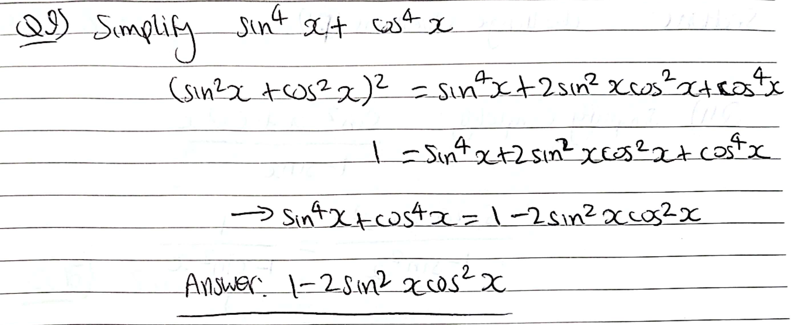 Q9) Simplify sin⁴x + cos⁴x
(sin²x + cos²x)² = sin⁴x + 2sin²xcos²x + cos⁴x
1 = sin⁴x + 2sin²xcos²x + cos⁴x
→ sin⁴x + cos⁴x = 1 - 2sin²xcos²x
Answer: 1 - 2sin²xcos²x